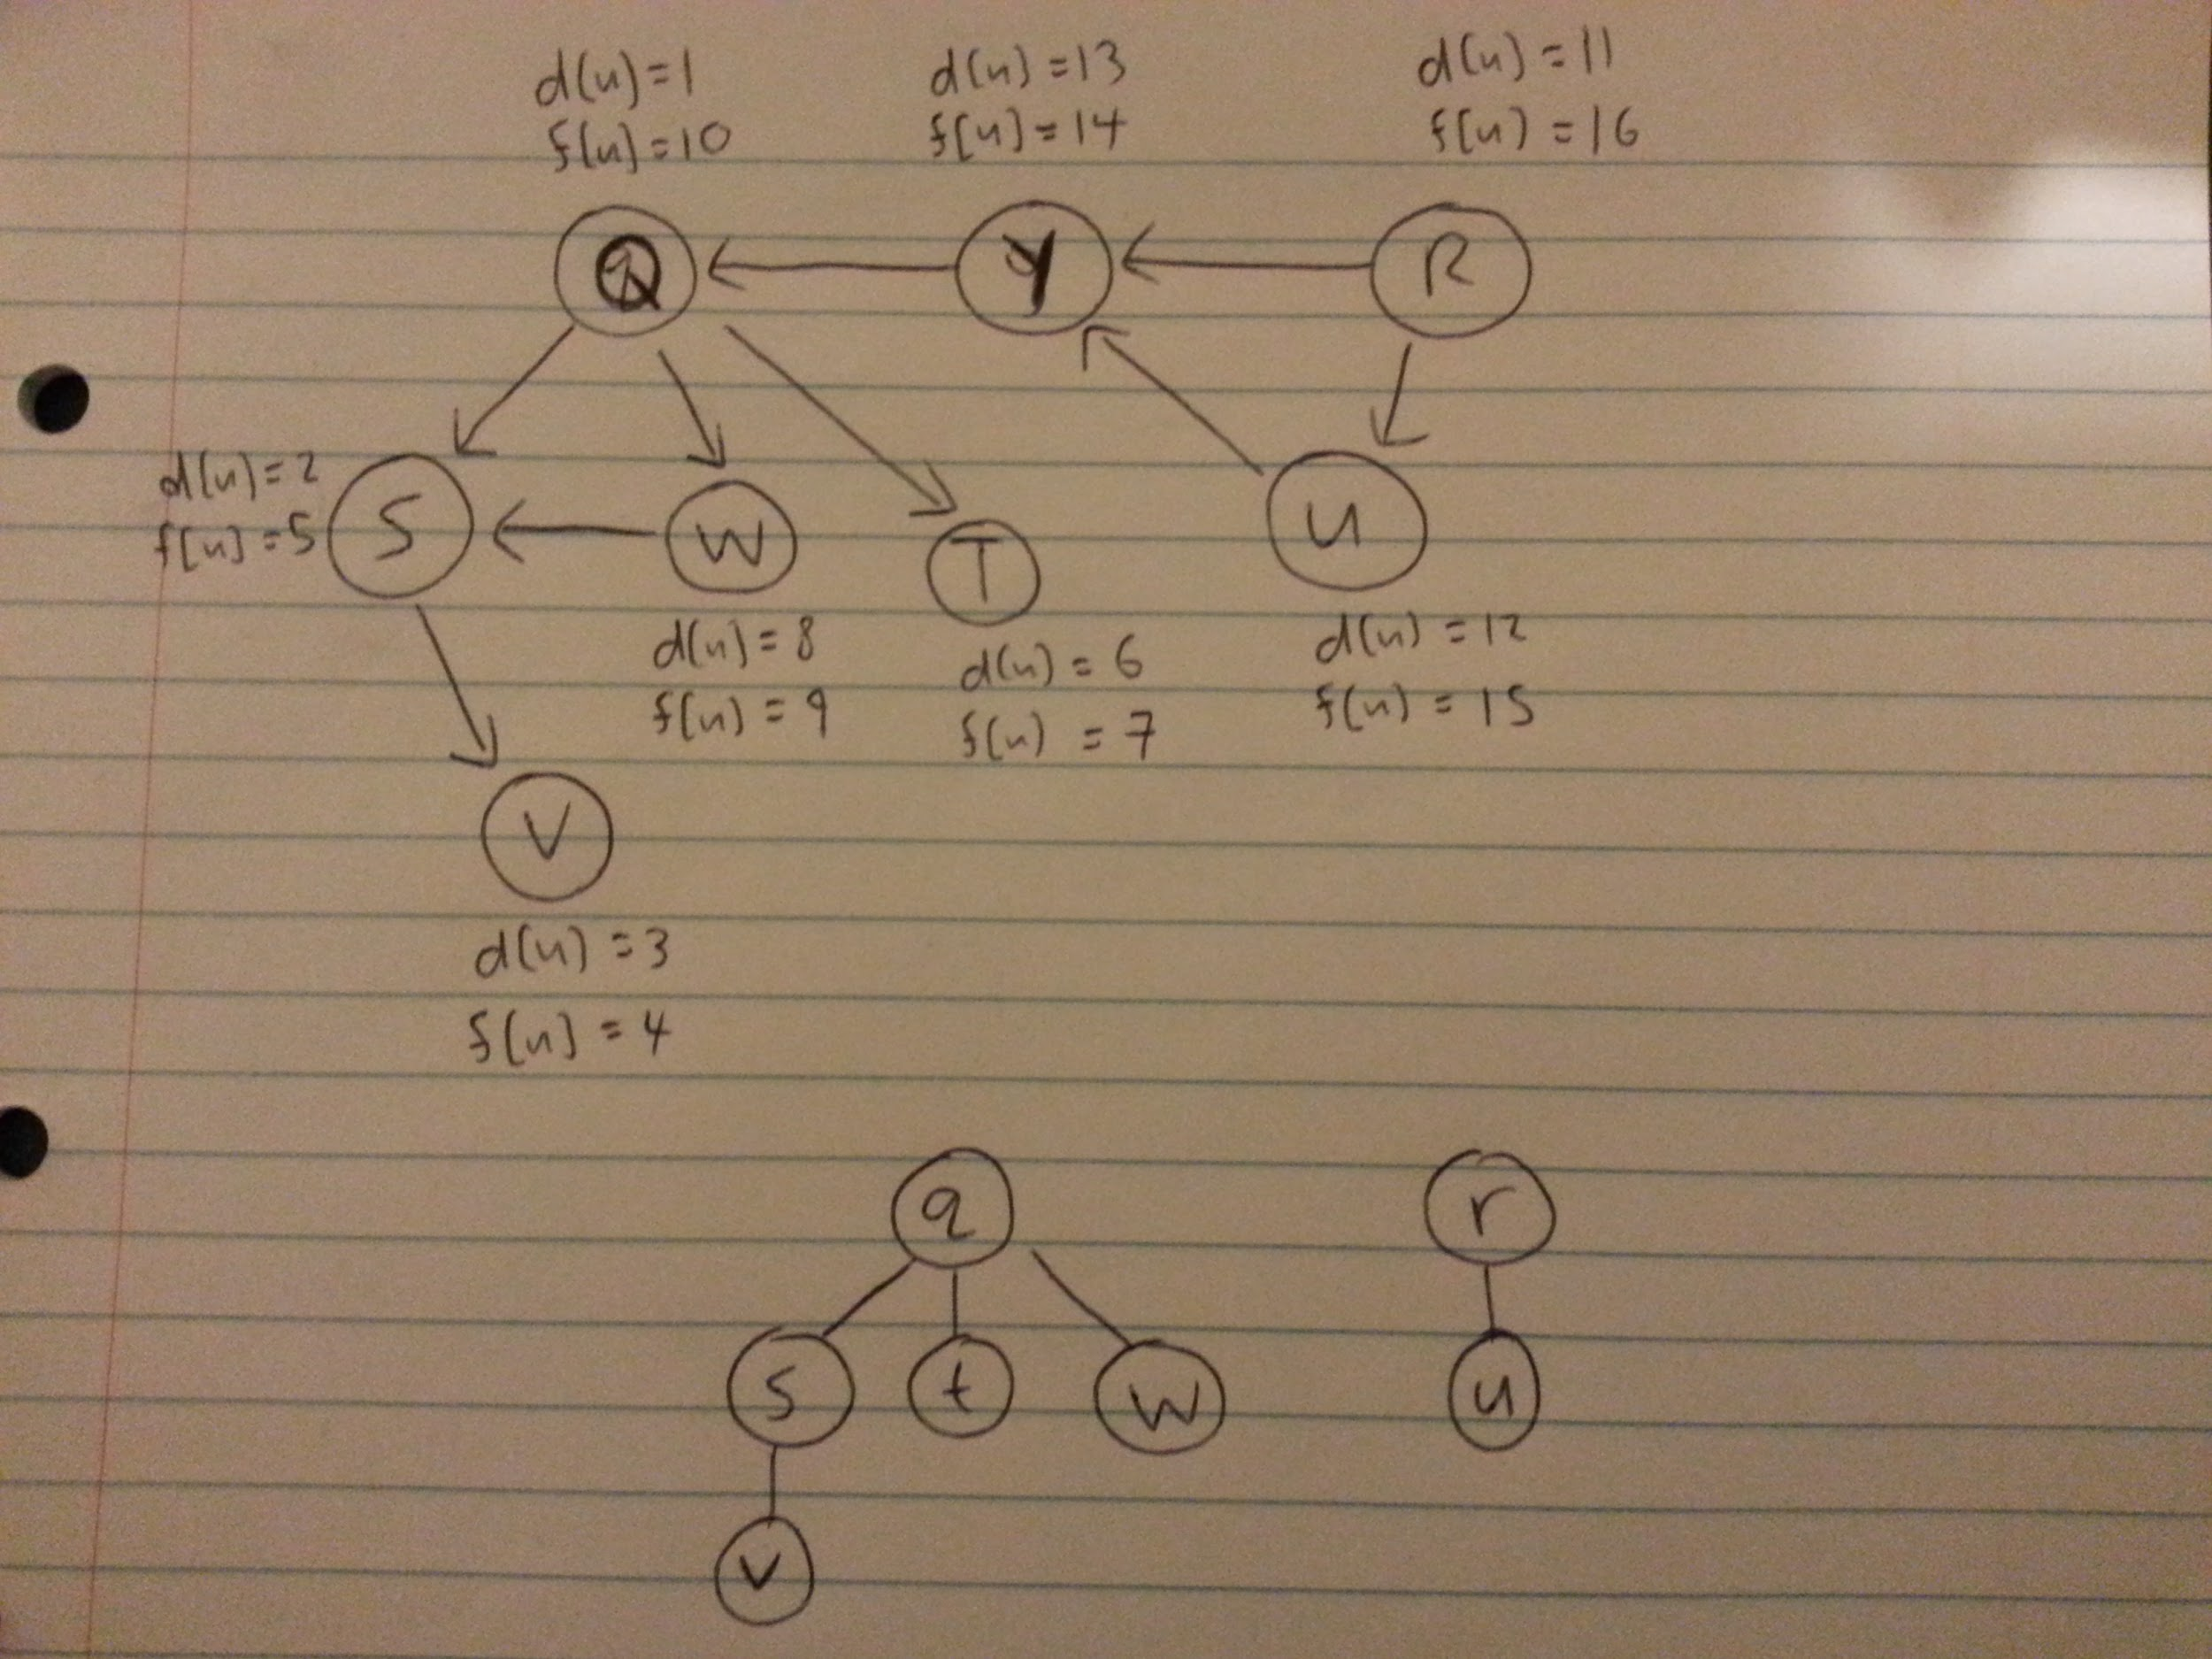 d(u)=1
f[u]=10
d(u)=13
f[u]=14
d(u)=11
f(u)=16
Q
Y
R
d(u)=2
f[u]=5
S
W
T
u
d(u)=8
f(u)=9
d(u)=6
f(u)=7
d(u)=12
f(u)=15
V
d(u)=3
f[u]=4
q
r
s
t
w
u
v